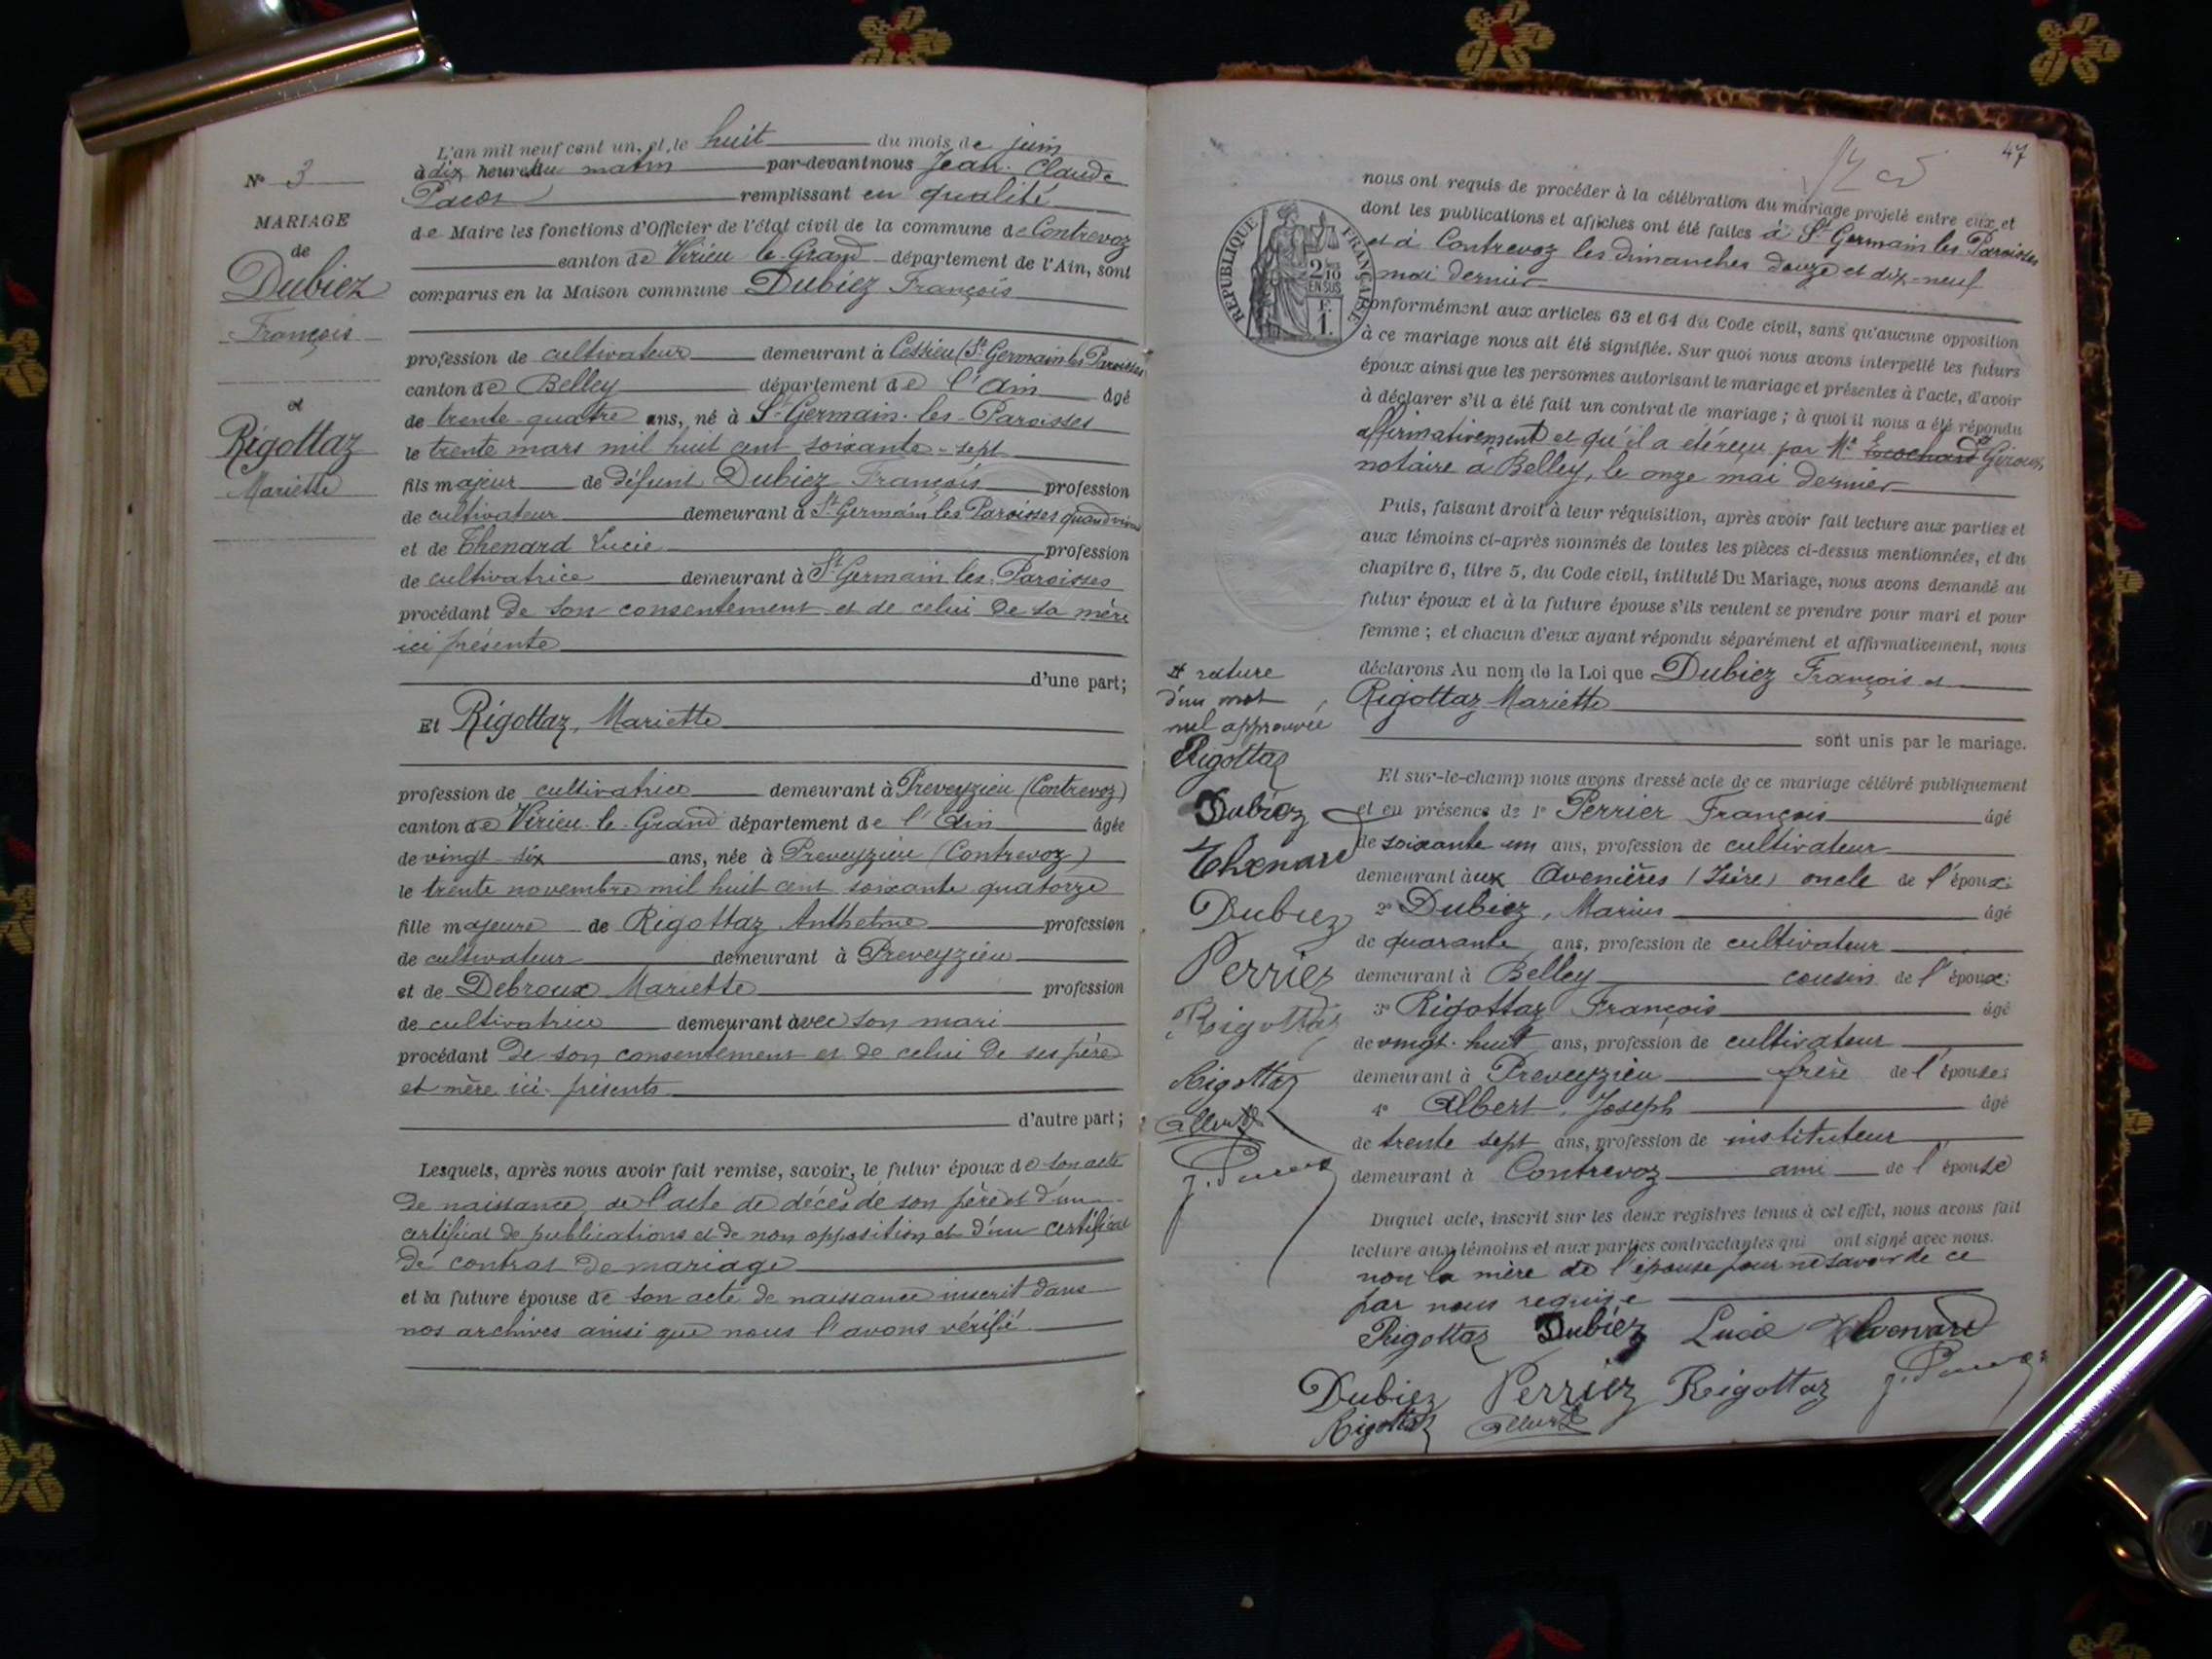 N° 3
MARIAGE
de
Dubiez
François
et
Rigottaz
Mariette
L'an mil neuf cent un, et le huit du mois de juin
à dix heures du matin par-devant nous Jean-Claude
remplissant en qualité
de Maire les fonctions d'Officier de l'état civil de la commune de Contrevoz
canton de Virieu le-Grand département de l'Ain, sont
comparus en la Maison commune Dubiez François
profession de cultivateur demeurant à Cessieu (St Germain les Paroisses
canton de Belley département de l'Ain âgé
de trente-quatre ans, né à St-Germain-les-Paroisses
le trente mars mil huit cent soixante-sept
fils majeur de défunt Dubiez François profession
de cultivateur demeurant à St-Germain les Paroisses quand vivait
et de Thenard Lucie profession
de cultivatrice demeurant à St Germain les Paroisses
procédant de son consentement et de celui de sa mère
ici présente
d'une part;
Et Rigottaz, Mariette
profession de cultivatrice demeurant à Preveyzieu (Contrevoz)
canton de Virieu-le-Grand département de l'Ain âgée
de vingt-six ans, née à Preveyzieu (Contrevoz)
le trente novembre mil huit cent soixante quatorze
fille majeure de Rigottaz Anthelme profession
de cultivateur demeurant à Preveyzieu
et de Debroux Mariette profession
de cultivatrice demeurant avec son mari
procédant de son consentement et de celui de ses père
et mère ici-présents
d'autre part;
Lesquels, après nous avoir fait remise, savoir, le futur époux de son acte
de naissance, de l'acte de décès de son père et d'un
certificat de publications et de non opposition et d'un certificat
de contrat de mariage
et la future épouse de son acte de naissance inscrit dans
nos archives ainsi que nous l'avons vérifié
47
RÉPUBLIQUE FRANÇAISE
2/10
EN SUS
F.
1.
nous ont requis de procéder à la célébration du mariage projeté entre eux et
dont les publications et affiches ont été faites à St Germain les Paroisses
et à Contrevoz les dimanches douze et dix-neuf
mai dernier
conformément aux articles 63 et 64 du Code civil, sans qu'aucune opposition
à ce mariage nous ait été signifiée. Sur quoi nous avons interpellé les futurs
époux ainsi que les personnes autorisant le mariage et présentes à l'acte, d'avoir
à déclarer s'il a été fait un contrat de mariage ; à quoi il nous a été répondu
affirmativement et qu'il a été reçu par Me
notaire à Belley, le onze mai dernier
Puis, faisant droit à leur réquisition, après avoir fait lecture aux parties et
aux témoins ci-après nommés de toutes les pièces ci-dessus mentionnées, et du
chapitre 6, titre 5, du Code civil, intitulé Du Mariage, nous avons demandé au
futur époux et à la future épouse s'ils veulent se prendre pour mari et pour
femme ; et chacun d'eux ayant répondu séparément et affirmativement, nous
déclarons Au nom de la Loi que Dubiez François et
Rigottaz Mariette
sont unis par le mariage.
Et sur-le-champ nous avons dressé acte de ce mariage célébré publiquement
et en présence de 1° Perrier François âgé
de soixante un ans, profession de cultivateur
demeurant aux Avenières (Isère) oncle de l'époux;
2° Dubiez, Marius âgé
de quarante ans, profession de cultivateur
demeurant à Belley cousin de l'époux;
3° Rigottaz François âgé
de vingt-huit ans, profession de cultivateur
demeurant à Preveyzieu frère de l'épouse;
4° Albert, Joseph âgé
de trente sept ans, profession de instituteur
demeurant à Contrevoz ami de l'épouse
Duquel acte, inscrit sur les deux registres tenus à cet effet, nous avons fait
lecture aux témoins et aux parties contractantes qui ont signé avec nous.
non la mère de l'épouse pour ne savoir de ce
par nous requise
Rigottaz Dubiez Lucie Thenard
Dubiez Perrier Rigottaz
Rigottaz Albert
rature
d'un mot
nul approuvée
Rigottaz
Dubiez
Thenard
Dubiez
Perrier
Rigottaz
Rigottaz
Albert